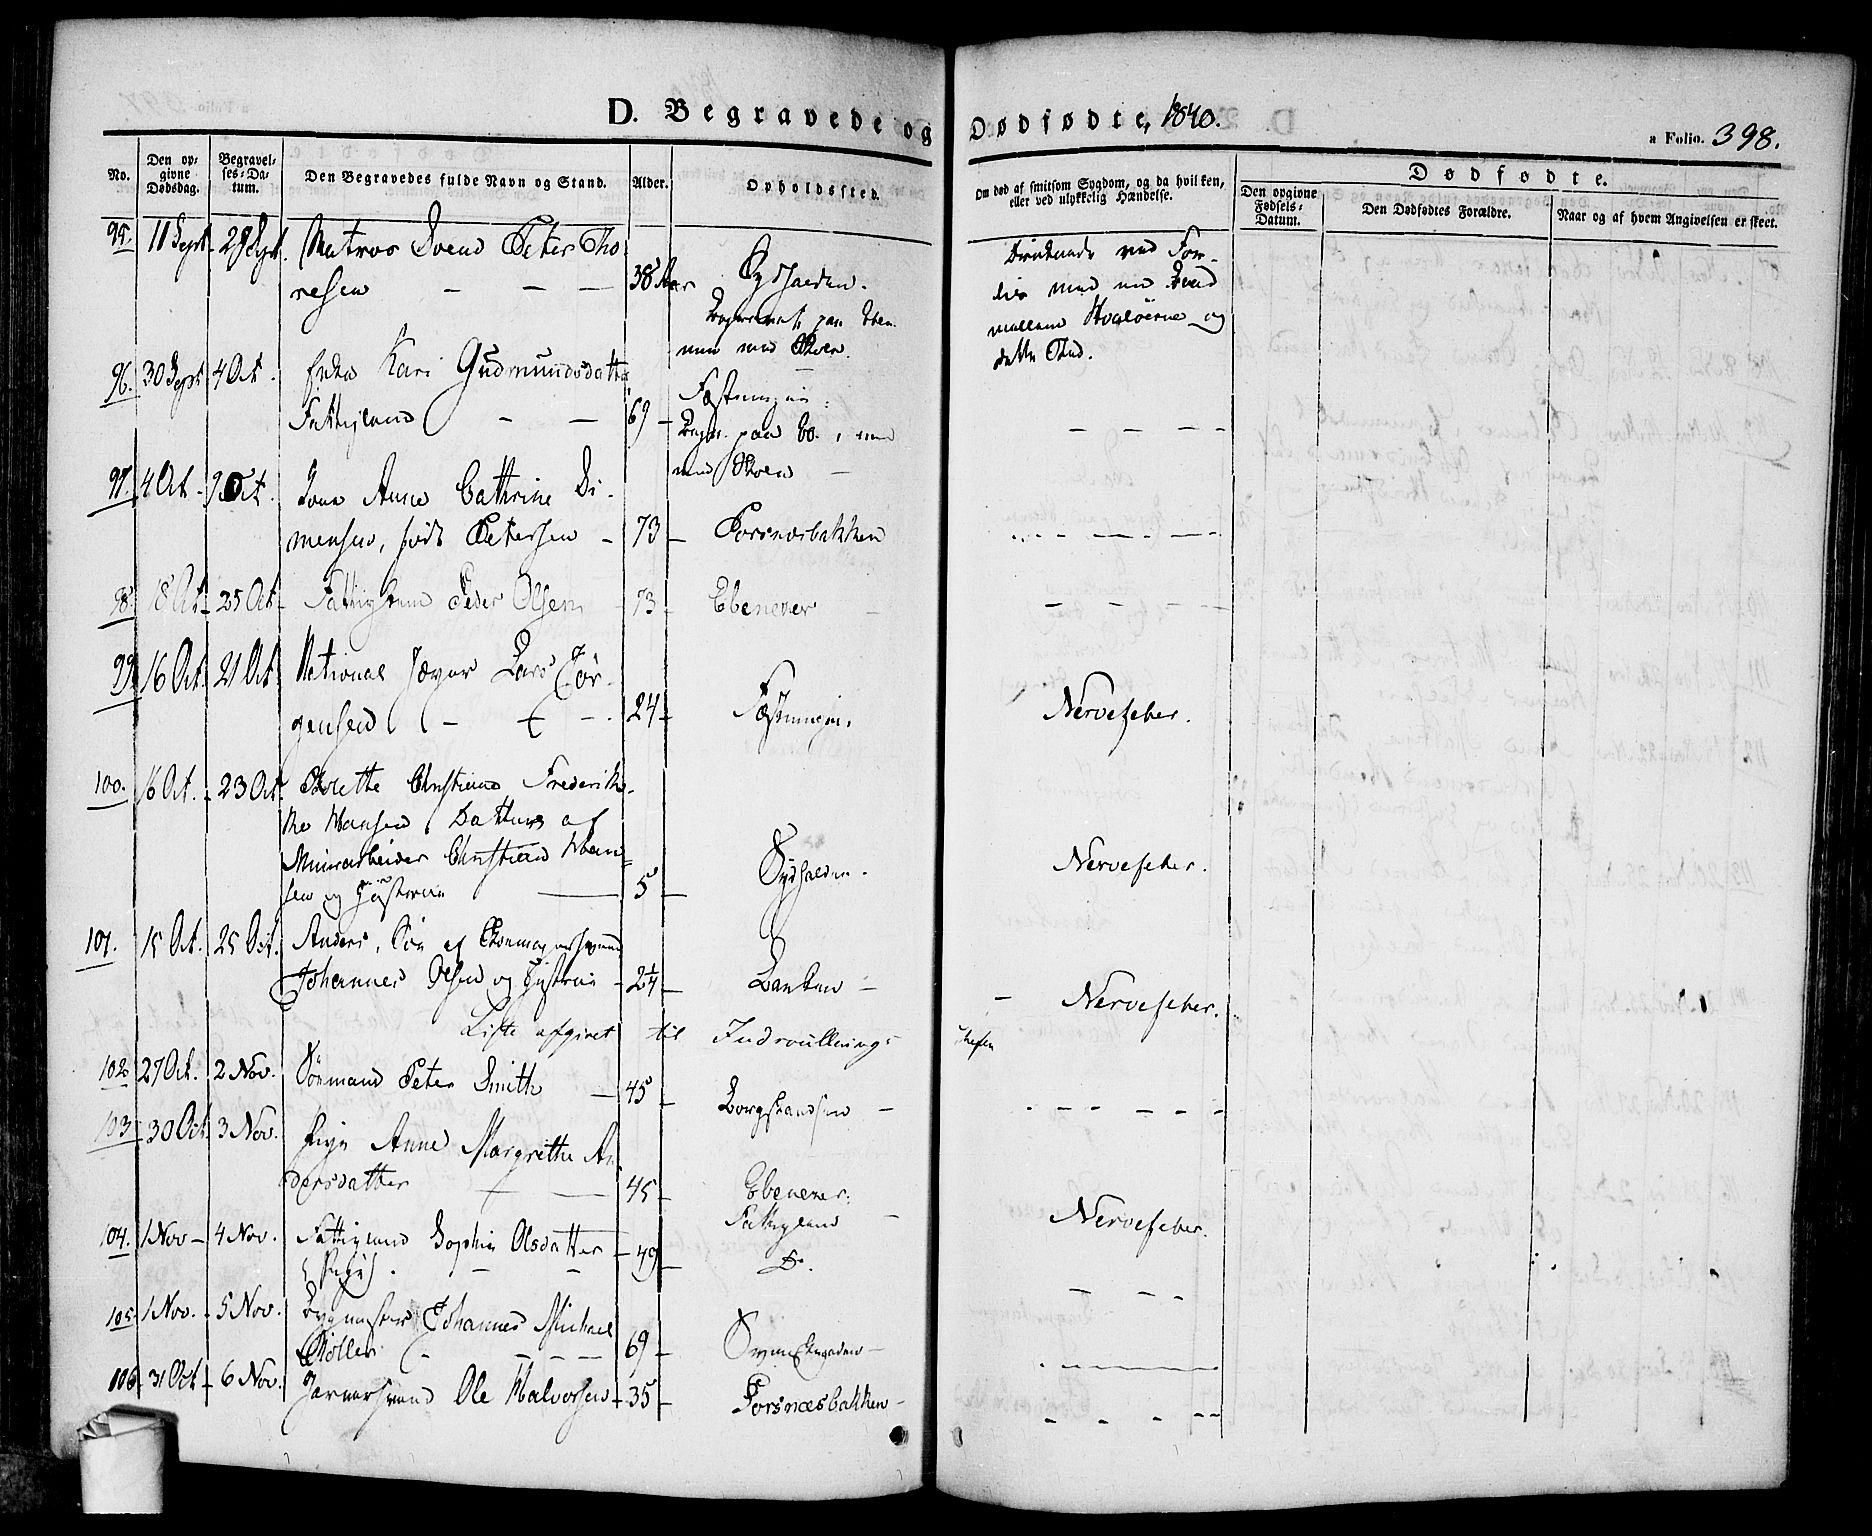 D. Begravede og Dødfødte, 1840.
a Folio. 398.
No.
Den op-
givne
Dødsdag.
Begravel-
ses-Da-
tum.
Den Begravedes fulde Navn og Stand.
Alder.
Opholdssted.
Om død af smitsom Sygdom, og da hvilken,
eller ved ulykkelig Hændelse.
Dødfødte.
Den opgivne
Fødsels-
Datum.
Den Dødfødtes Forældre.
Naar og af hvem Angivelsen er skeet.
95. 11 Sept. 29 Sept. Matros Svend Peter Tho-
resen 38 Aar Sydhalden.
Druknede ved For-
lis med en
mellem Hvaløerne og
dette Sted.
96. 30 Sept 4 Oct. Enke Kari Gudmundsdatter
Fattiglem 69 Fæstningen.
97. 4 Oct. 9 Oct. Anne Cathrine Si-
mensen, født Petersen 73 Torsnæsbakken
98. 18 Oct. 25 Oct. Fattiglem Peder Olsen 73 Ebenezer
99. 16 Oct. 21 Oct. National Jæger Lars Jør-
gensen 24 Fæstningen. Nervefeber.
100. 16 Oct. 23 Oct. Christiane Frederik-
ke Hansen, Datter af
Minearbeider Christian Han-
sen og Hustrue 5 Sydhalden. Nervefeber.
101. 15 Oct. 25 Oct. Anders, Søn af Skomagersvend
Johannes Olsen og Hustrue 2 1/4 Banken Nervefeber.
Liste afgivet til Indroullerings Chefen
102. 27 Oct. 2 Nov. Sømand Peter Smith 45
103. 30 Oct. 3 Nov. Pige Anne Margrethe An-
dersdatter 45 Ebenezer.
104. 1 Nov. 4 Nov. Fattiglem Sophie Olsdatter
(Pige). 49 Fattiglem
Do. Nervefeber.
105. 1 Nov. 5 Nov. Bygmester Johannes Michael
Møller 69
106. 31 Oct. 6 Nov. Ole Halvorsen 35 Torsnæsbakken